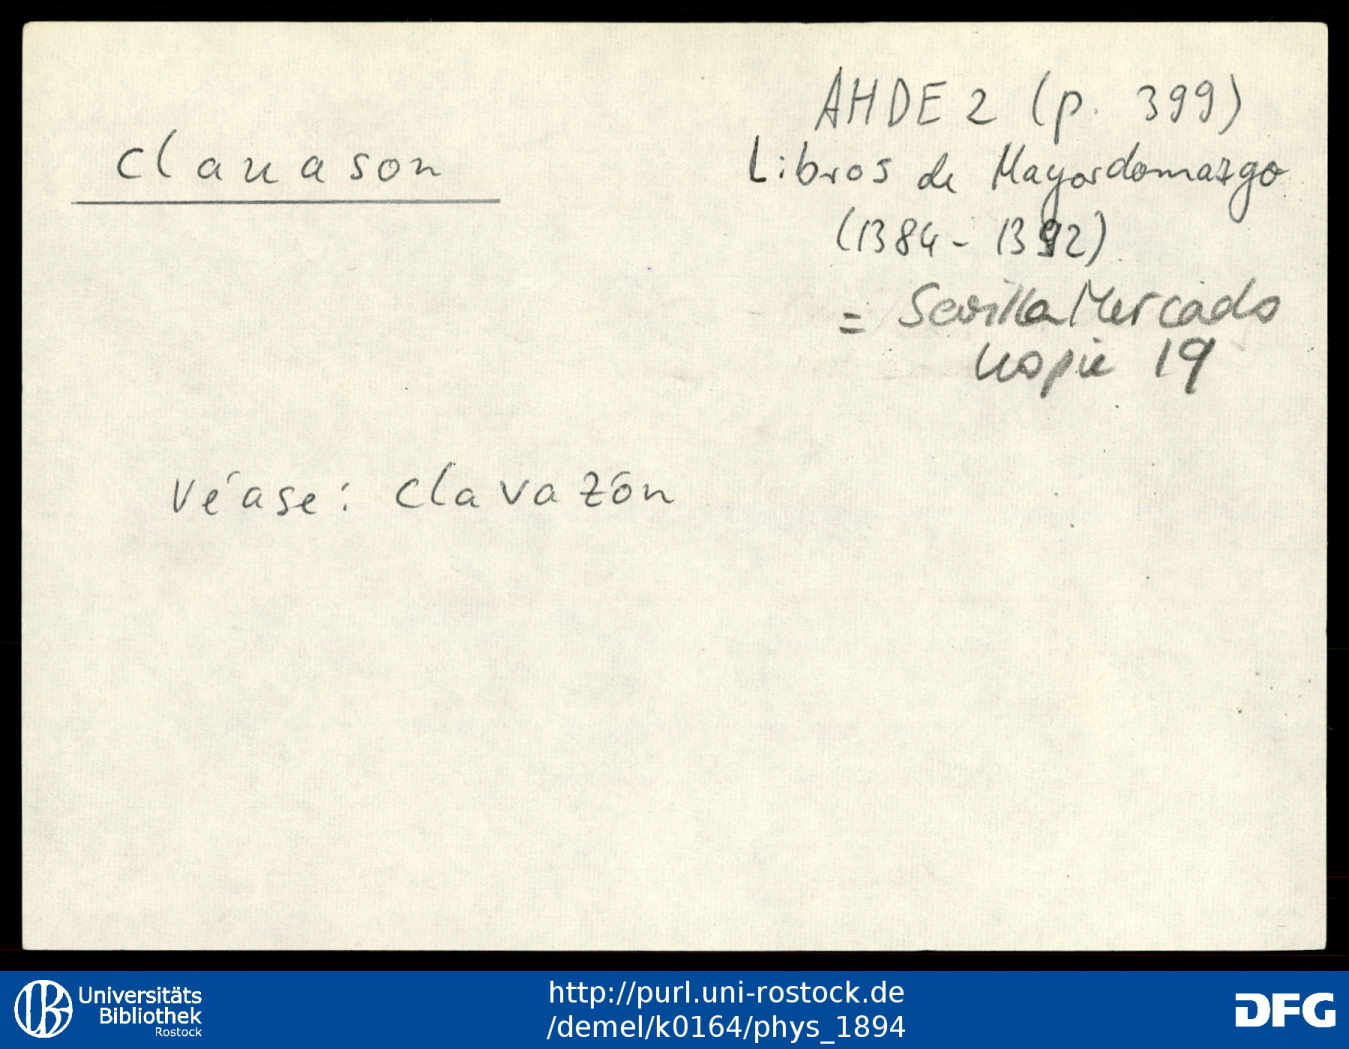 clauason
AHDE 2 (p. 399)
Libros de Mayordomazgo
(1384-1392)
= Sevilla Mercado
Kopie 19
Véase: clavazón
Universitäts
Bibliothek
Rostock
http://purl.uni-rostock.de
/demel/k0164/phys_1894
DFG